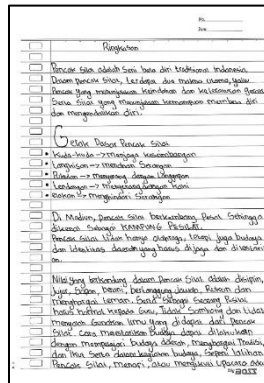 No.
Date
Ringkasan
Pencak Silat adalah Seni bela diri tradisional Indonesia.
Dalam Pencak Silat, terdapat dua makna utama, yaitu
Pencak yang menunjukkan keindahan dan kelenturan gerak
Serta Silat yang menunjukkan kemampuan membela diri
dan mengendalikan diri.
Gerak Dasar Pencak Silat
• Kuda-kuda → menjaga keseimbangan
• Tangkisan → menahan Serangan
• Pukulan → menyerang dengan tangan
• Tendangan → menyerang dengan kaki
• Elakan → menghindari Serangan
Di Madiun, Pencak Silat berkembang Pesat Sehingga
dikenal Sebagai KAMPUNG PESILAT.
Pencak Silat tidak hanya olahraga, tetapi juga budaya
dan identitas daerah yang harus dijaga dan dilestari
Nilai yang terkandung dalam Pencak Silat adalah disiplin,
jujur, Sopan, berani, bertanggung jawab, dan
menghargai teman. Sebagai Seorang Pesilat
harus hormat kepada Guru, Tidak Sombong dan tidak
ilmu yang didapat dari Pencak
Silat. Cara melestarikan Budaya dapat dilakukan
dengan mempelajari budaya daerah, menghargai
dan ikut Serta dalam kegiatan budaya, Seperti latihan
Pencak Silat, menari, atau mengikuti Upacara adat